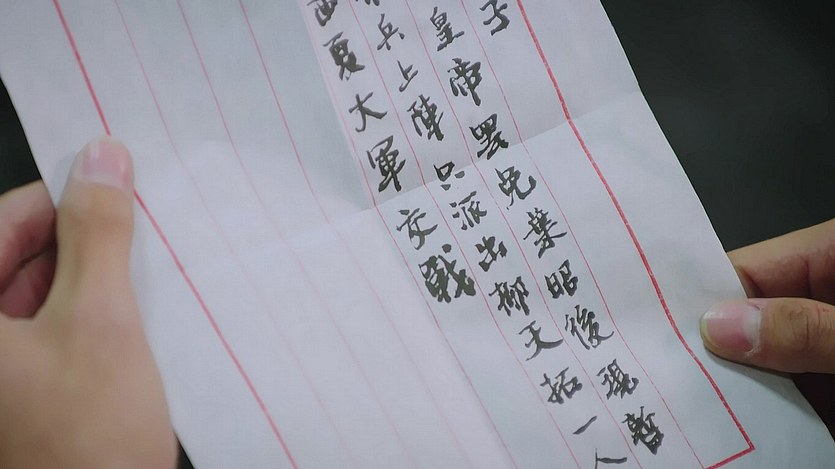 子
皇帝罢免葉昭後現暫
兵上陣只派出柳天拓一人
西夏大軍交戰